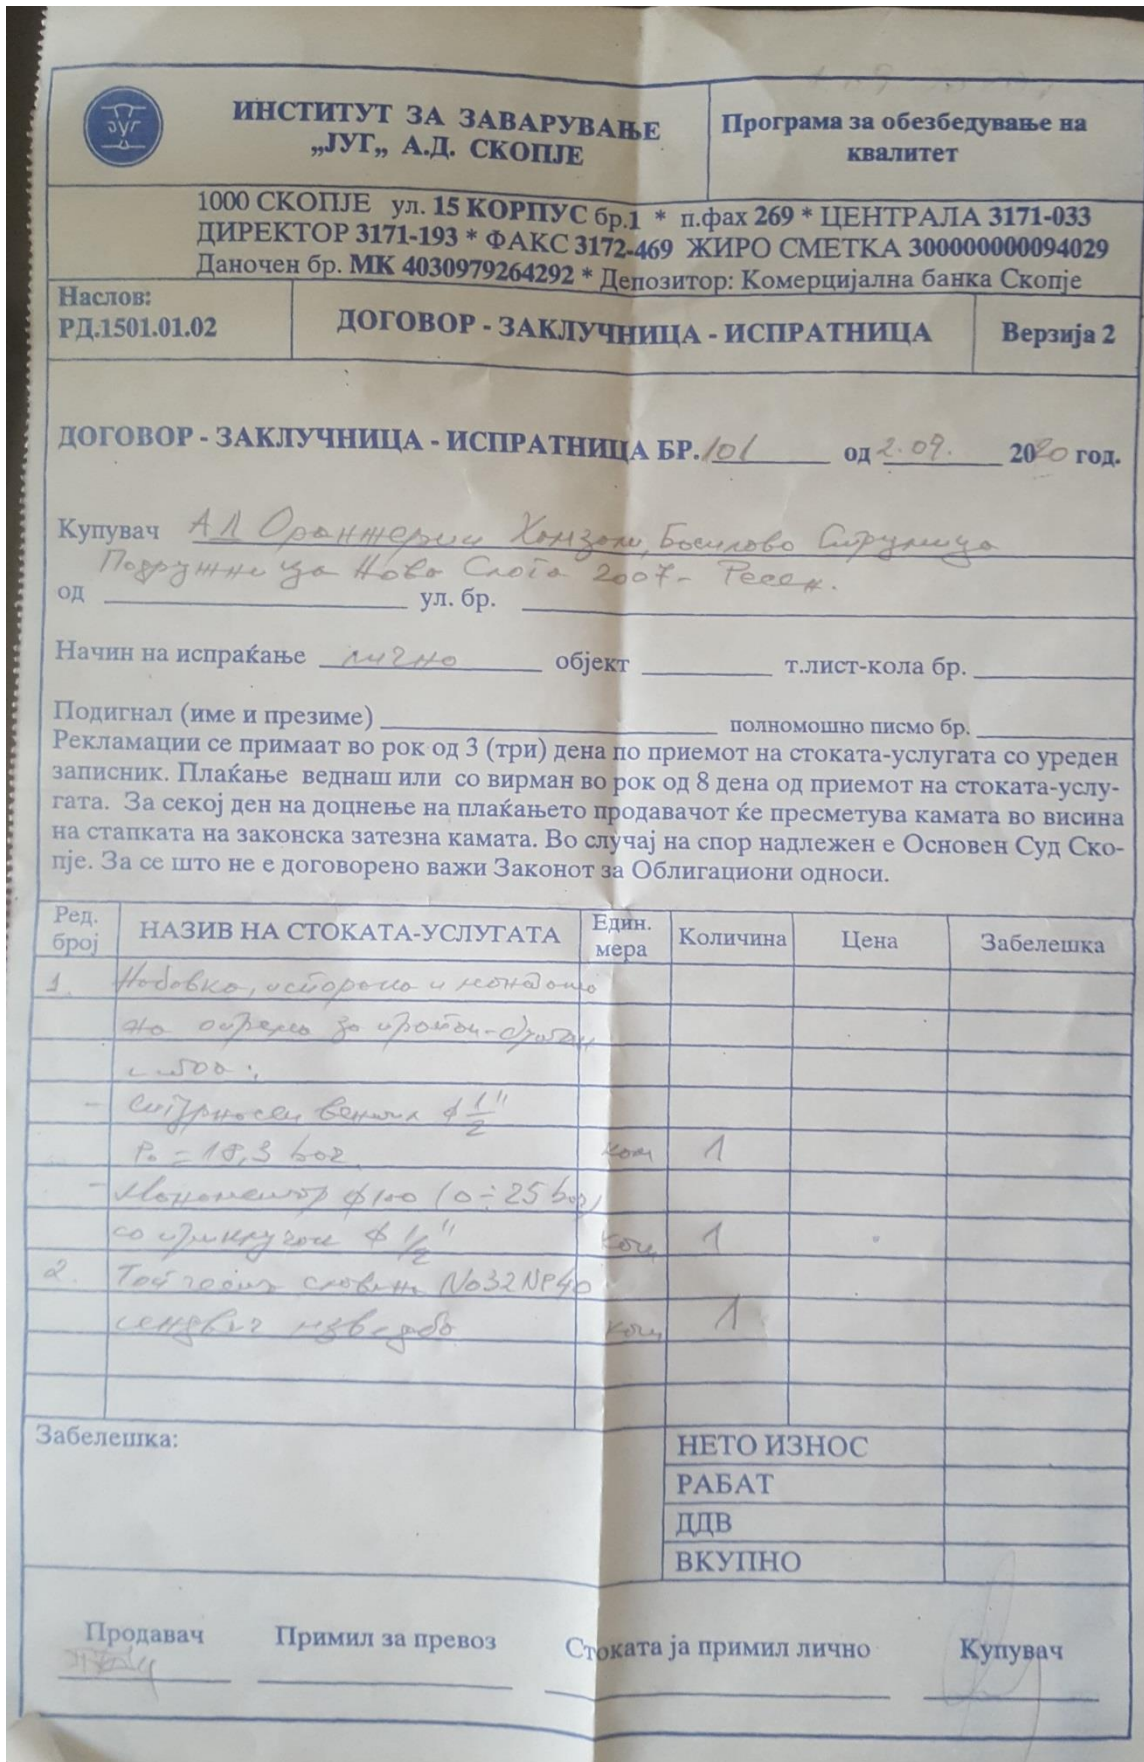 југ
ИНСТИТУТ ЗА ЗАВАРУВАЊЕ
„ЈУГ„ А.Д. СКОПЈЕ
Програма за обезбедување на
квалитет
1000 СКОПЈЕ ул. 15 КОРПУС бр.1 * п.фах 269 * ЦЕНТРАЛА 3171-033
ДИРЕКТОР 3171-193 * ФАКС 3172-469 ЖИРО СМЕТКА 300000000094029
Даночен бр. МК 4030979264292 * Депозитор: Комерцијална банка Скопје
Наслов:
РД.1501.01.02
ДОГОВОР - ЗАКЛУЧНИЦА - ИСПРАТНИЦА
Верзија 2
ДОГОВОР - ЗАКЛУЧНИЦА - ИСПРАТНИЦА БР. 101 од 2.09. 2020 год.
Купувач АД Оранжерии Хамзали, Босилово Струмица
Подружница Нова Слога 2007 - Ресен.
од ул. бр.
Начин на испраќање лично објект т.лист-кола бр.
Подигнал (име и презиме) полномошно писмо бр.
Рекламации се примаат во рок од 3 (три) дена по приемот на стоката-услугата со уреден
записник. Плаќање веднаш или со вирман во рок од 8 дена од приемот на стоката-услу-
гата. За секој ден на доцнење на плаќањето продавачот ќе пресметува камата во висина
на стапката на законска затезна камата. Во случај на спор надлежен е Основен Суд Ско-
пје. За се што не е договорено важи Законот за Облигациони односи.
Ред. број НАЗИВ НА СТОКАТА-УСЛУГАТА Един. мера Количина Цена Забелешка
1. Набавка, испорака и монтажа
на опрема за
- Сигурносен вентил ф 1/2"
Po = 18,3 bar ком 1
- Манометар ф100 (0÷25 bar)
со приклучок ф 1/2" ком 1
2. славина No32 NP40
сендвич изведба ком 1
Забелешка:
НЕТО ИЗНОС
РАБАТ
ДДВ
ВКУПНО
Продавач Примил за превоз Стоката ја примил лично Купувач